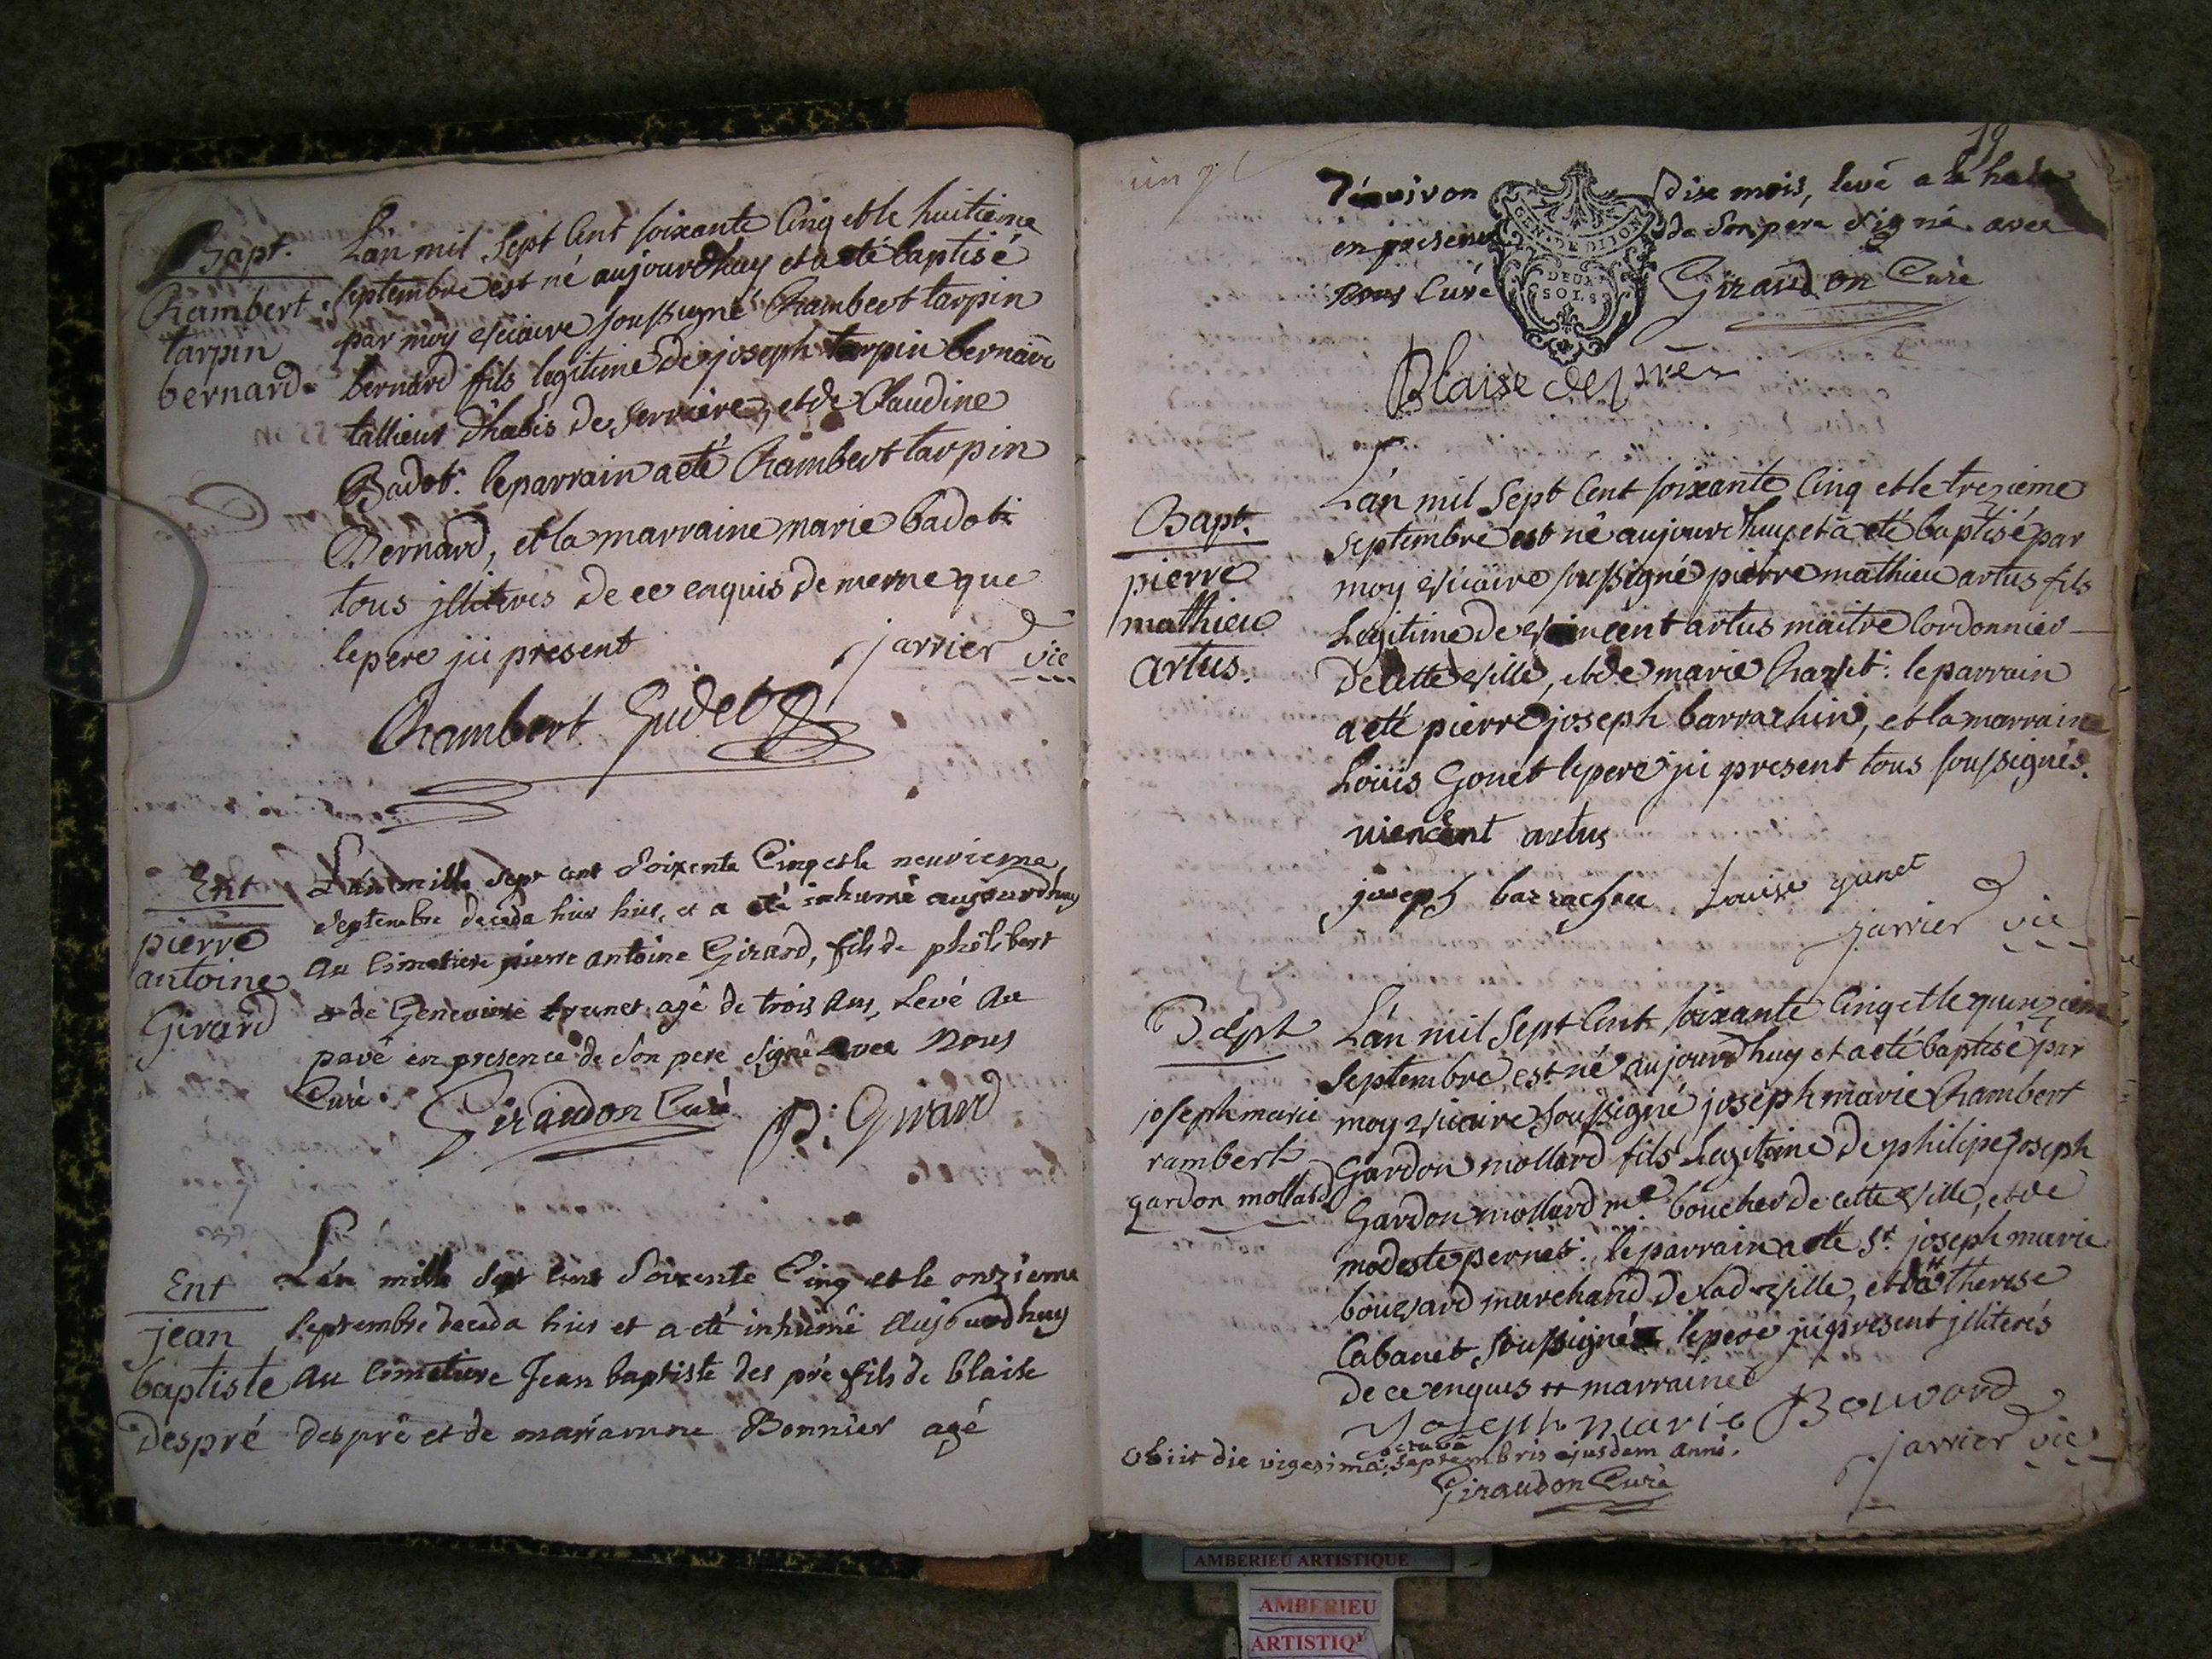 Bapt.
Rambert
tarpin
bernard
Lán mil Sept Cent soixante Cinq et le huitieme
septembre est né aujourdhuy et a eté baptisé
par moy vicaire soussigné Rambert tarpin
bernard fils legitime de joseph tarpin bernard
tallieur dhabis de serriere, et de Claudine
Badot. le parrain a eté Rambert tarpin
Bernard, et la marraine marie badot
tous jlliterés de ce enquis de meme que
le pere jci present
jarrier vic
Rambert Gudet
Ent
pierre
antoine
Girard
Lán mille sept cent Soixente Cinq et le neuvieme
Septembre deceda hier, et a eté inhumé aujourdhuy
au Cimetiere pierre antoine Girard, fils de philibert
et de Genevieve brunet agé de trois ans, Levé au
pavé en presence de Son pere Signé avec Nous
Curé.
Giraudon Curé
P. Girard
Ent
jean
baptiste
Despré
Lán mille Sept Cent Soixente Cinq et le onzieme
Septembre deceda hier et a eté inhumé Aujourdhuy
au Cimetiere Jean baptiste des pré fils de blaise
despré et de mariamne Bonnier agé
19
d'environ dix mois, levé a la hale
en presence de Son pere Signé avec
Nous Curé Giraudon Curé
GEN. DE DIJON
DEUX
SOLS
Blaise després
Bapt.
pierre
mathieu
artus.
Lán mil Sept Cent soixante Cinq et le trezieme
septembre est né aujourdhuy et a eté baptisé par
moy vicaire soussigné pierre mathieu artus fils
Legitime de vincent artus maitre Cordonnier
De cette ville, et de marie le parrain
a eté pierre joseph barrachin, et la marraine
Louis Gonet le pere jci present tous soussignés.
viencent artus
joseph barrachin Louise gunet
jarrier vic
Bapt
joseph marie
rambert
gardon mollard
Lán mil Sept Cent soixante Cinq et le quinzieme
Septembre, est né aujourdhuy et a eté baptisé par
moy vicaire soussigné joseph marie Rambert
Gardon mollard fils Legitime de philipe joseph
Gardon mollard me boucher de cette ville, et de
modeste pernet. le parrain a eté Sr. joseph marie
bouvard marchand de lad. ville, et la therese
Cabanet soussigné le pere jci present jlliterés
de ce enquis et marraine
Joseph marie Bouvard
jarrier vic
Obiit die vigesima octava Septembris ejusdem anni.
Giraudon Curé
AMBERIEU ARTISTIQUE
AMBERIEU
ARTISTIQ